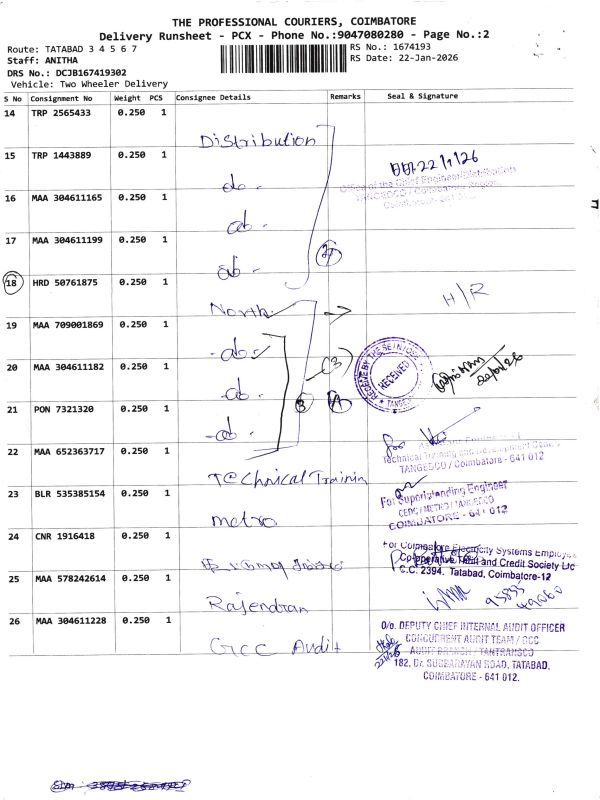 THE PROFESSIONAL COURIERS, COIMBATORE
Delivery Runsheet - PCX - Phone No.:9047080280 - Page No.:2
Route: TATABAD 3 4 5 6 7
Staff: ANITHA
DRS No.: DCJB167419302
Vehicle: Two Wheeler Delivery
RS No.: 1674193
RS Date: 22-Jan-2026
S No Consignment No Weight PCS Consignee Details Remarks Seal & Signature
14 TRP 2565433 0.250 1 Distribution
15 TRP 1443889 0.250 1 do. 22/1/26
Office of the Chief Engineer/Distribution
TANGEDCO / Coimbatore Region,
16 MAA 304611165 0.250 1 do.
17 MAA 304611199 0.250 1 do.
18 HRD 50761875 0.250 1 North H/R
19 MAA 709001869 0.250 1 do.
20 MAA 304611182 0.250 1 do. 3 RECEIVED 22/01/26
21 PON 7321320 0.250 1 do. 3
22 MAA 652363717 0.250 1 Technical Training
Technical Training and Development Centre
TANGEDCO / Coimbatore - 641 012
23 BLR 535385154 0.250 1 metro
For Superintending Engineer
CEPC / METRO / TANGEDCO
COIMBATORE - 641 012
24 CNR 1916418 0.250 1
For Coimbatore Electricity Systems Employees
Co-operative Thrift and Credit Society Ltd
C.C. 2394, Tatabad, Coimbatore-12
25 MAA 578242614 0.250 1 Rajendran
26 MAA 304611228 0.250 1 GCC Audit
O/o. DEPUTY CHIEF INTERNAL AUDIT OFFICER
CONCURRENT AUDIT TEAM / GCC
AUDIT BRANCH / TANTRANSCO
182, Dr. SUBBARAYAN ROAD, TATABAD,
COIMBATORE - 641 012.